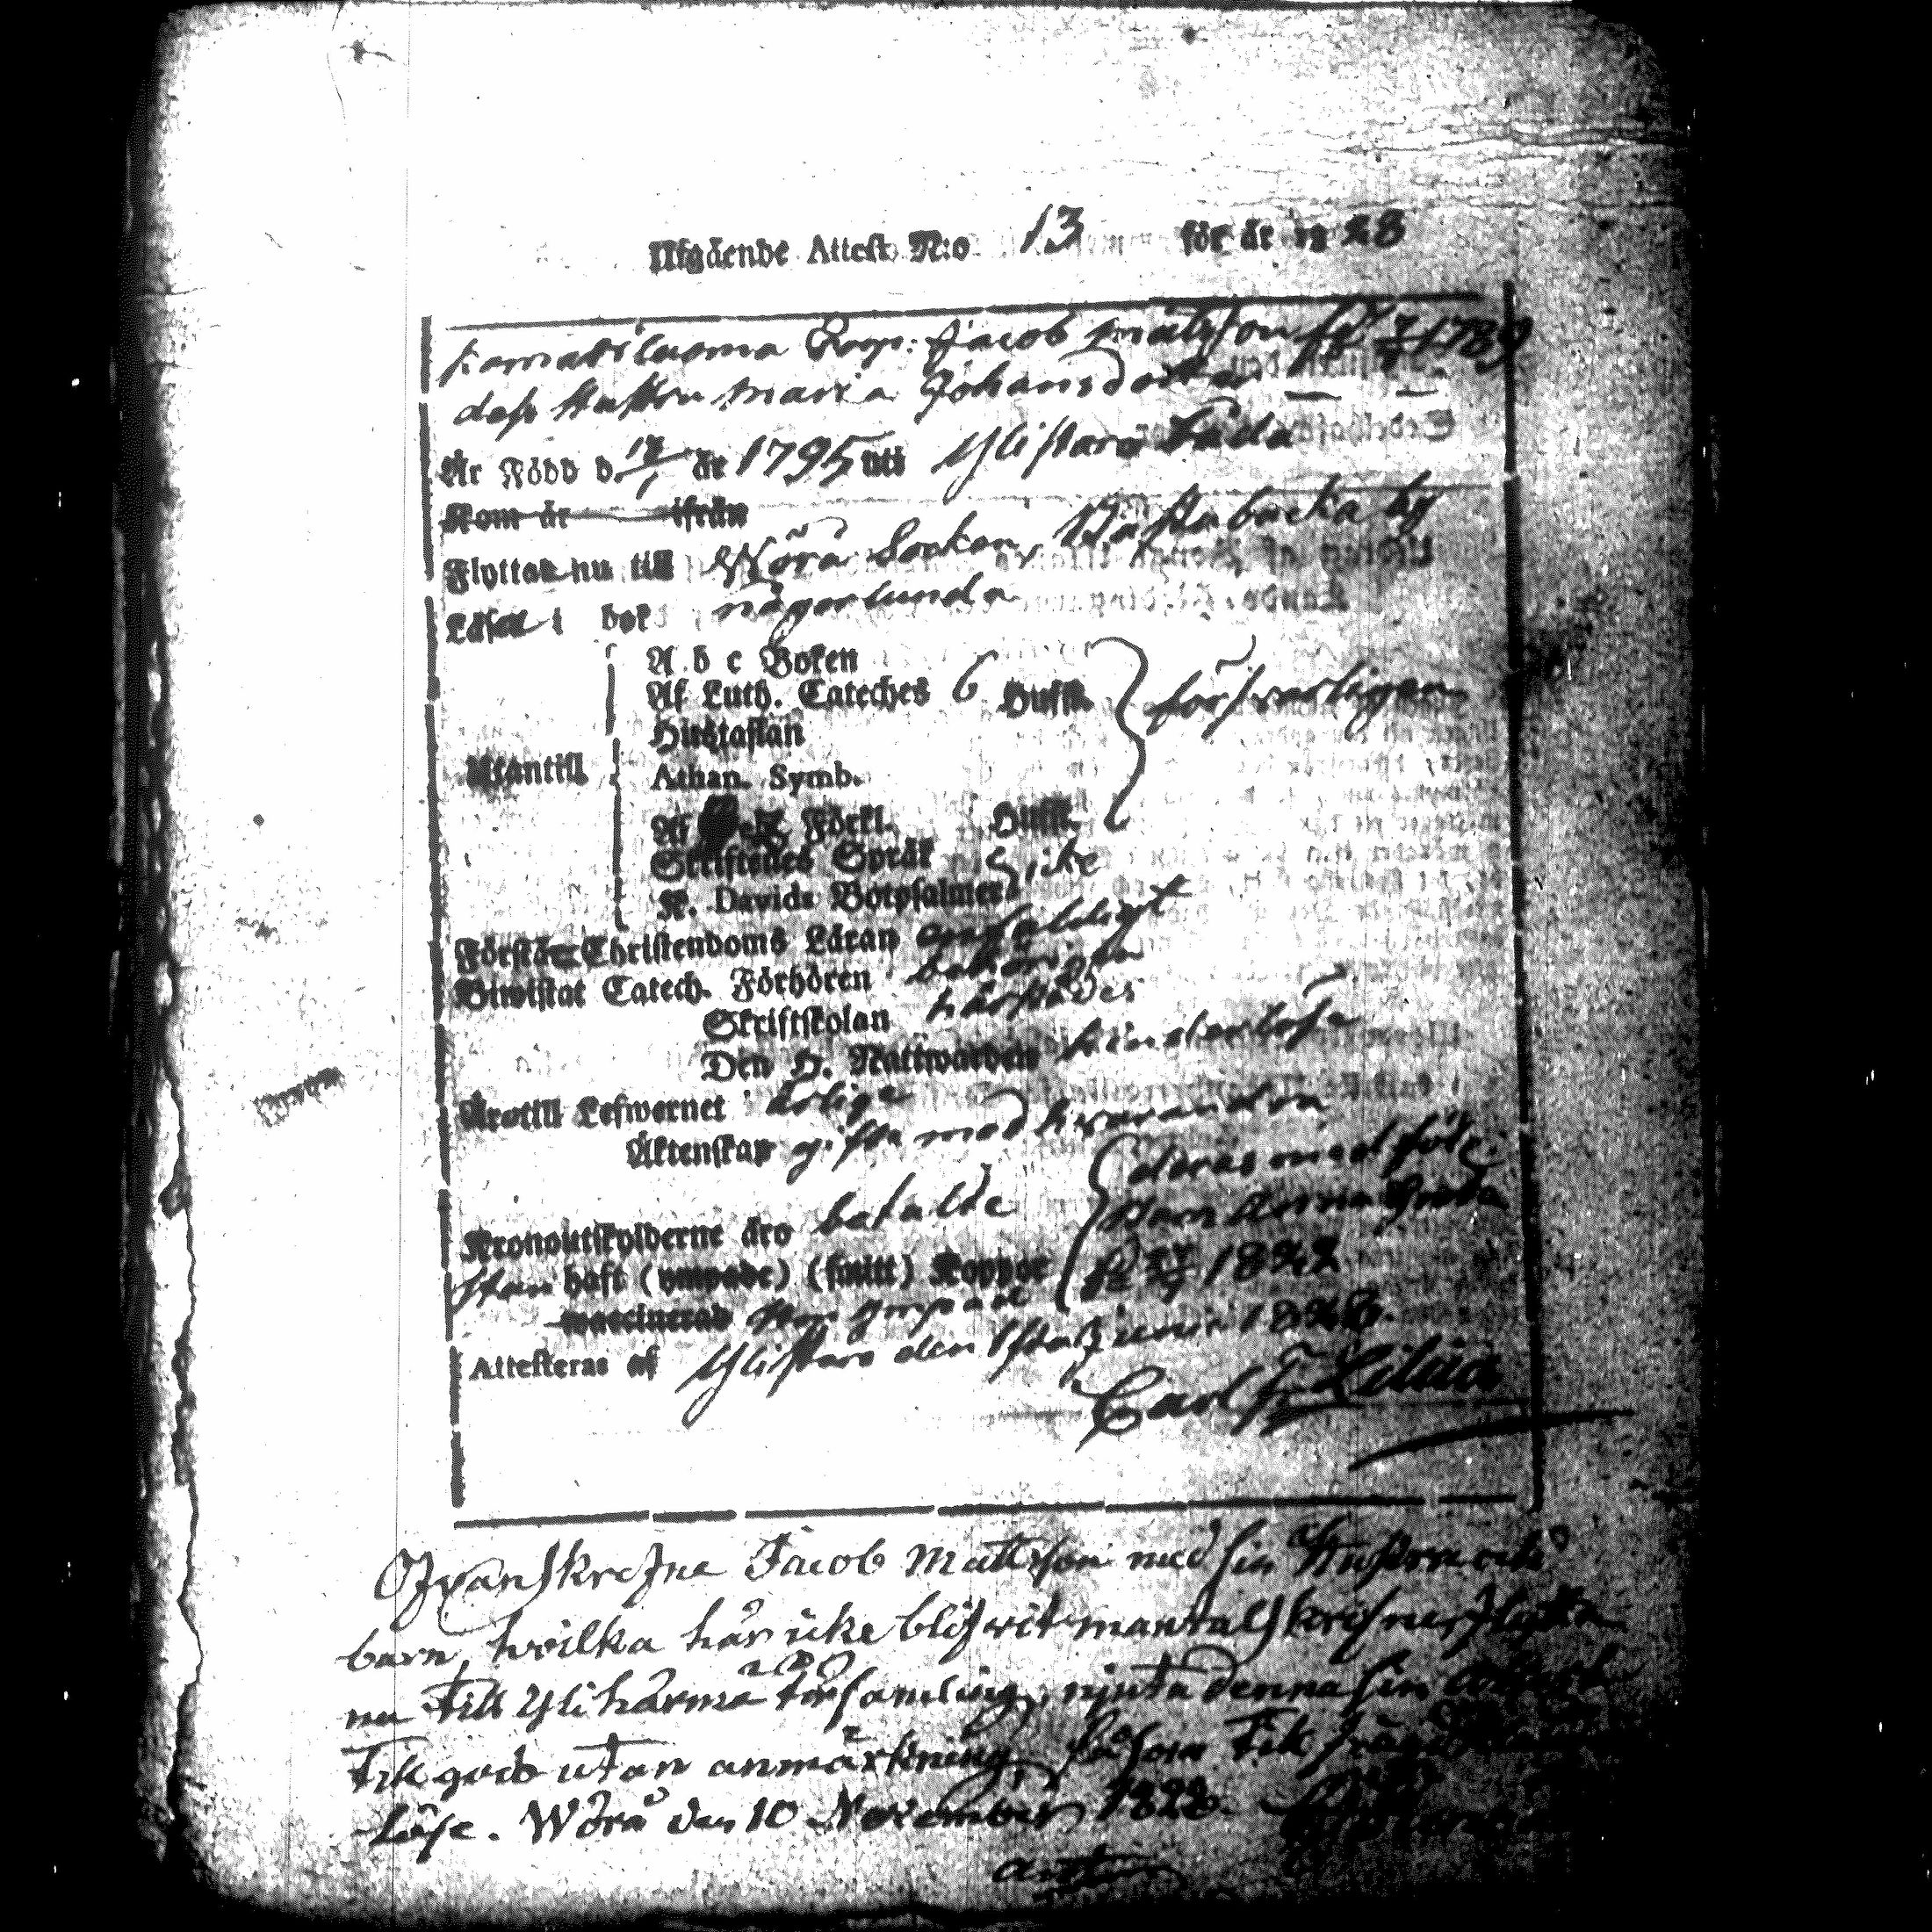 Utgående Attest N:o 13 för år 1828
Jacob Mattsson fö 1789
dess Hustru Maria Johansdotter
Är Född d. 17/1 år 1795 uti Ylistaro
Kom år ifrån
Flyttar nu till Wörå Socken, Kastabacka by
Läser i bok någorlunda
A b c Boken
Af Luth. Cateches 6 Hufst. försvarligen
Hustaflan
Utantill
Athan. Symb.
Af Förkl. Hufst.
Skriftenes Språk
K. Davids Botpsalmer icke
Förstår Christendoms Läran enfaldigt
Biwistat Catech. Förhören behöriga
Skriftskolan härstädes
Den H. Nattwarden hinderlöse
Äro till Lefwernet ärlige
Äktenskap gifta med hvarandra
deras med föl.
Kronoutskylderne äro betalde
Anna Greta
haft (ympade) (smitt) Koppor 1822
vaccinerad ympad
Attesteras af Ylistaro den 1828.
Carl Fr. Lilius
Ofvanskrefne Jacob Mattsson med sin Hustru och
barn, hvilka här icke blifvit mantalskrifne, flytta
nu till Ylihärmä församling, njuta denna sin attest
till godo utan anmärkning, såsom till
löse. Wörå den 10 November 1828.